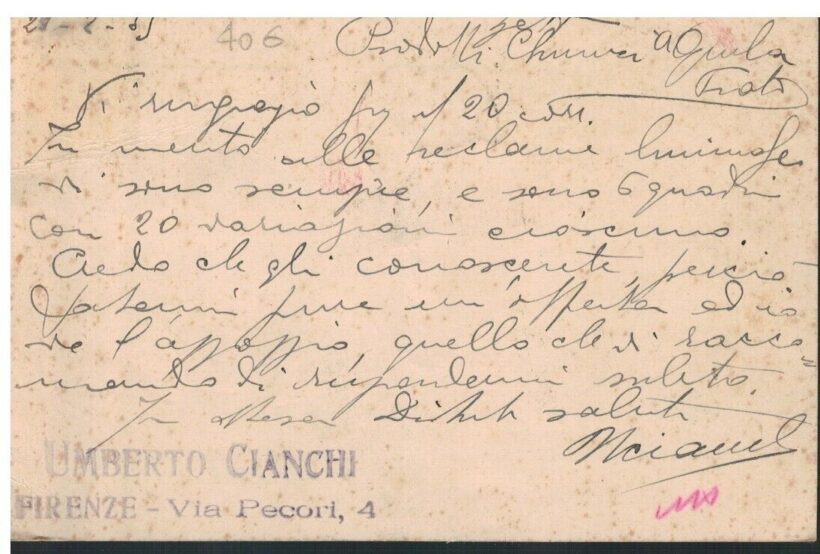 406
Prodotti Chimici Aquila
Prato
Vi ringrazio 20 corr.
In merito alle reclame luminose
vi sono sempre, e sono 6 quadri
con 20 variazioni ciascuno.
Credo che gli conoscerete, perciò
fatemi pure un'offerta ed io
ve l'appoggio, quello che vi racco=
mando di rispondermi subito.
In attesa Distinti saluti
UMBERTO CIANCHI
FIRENZE - Via Pecori, 4